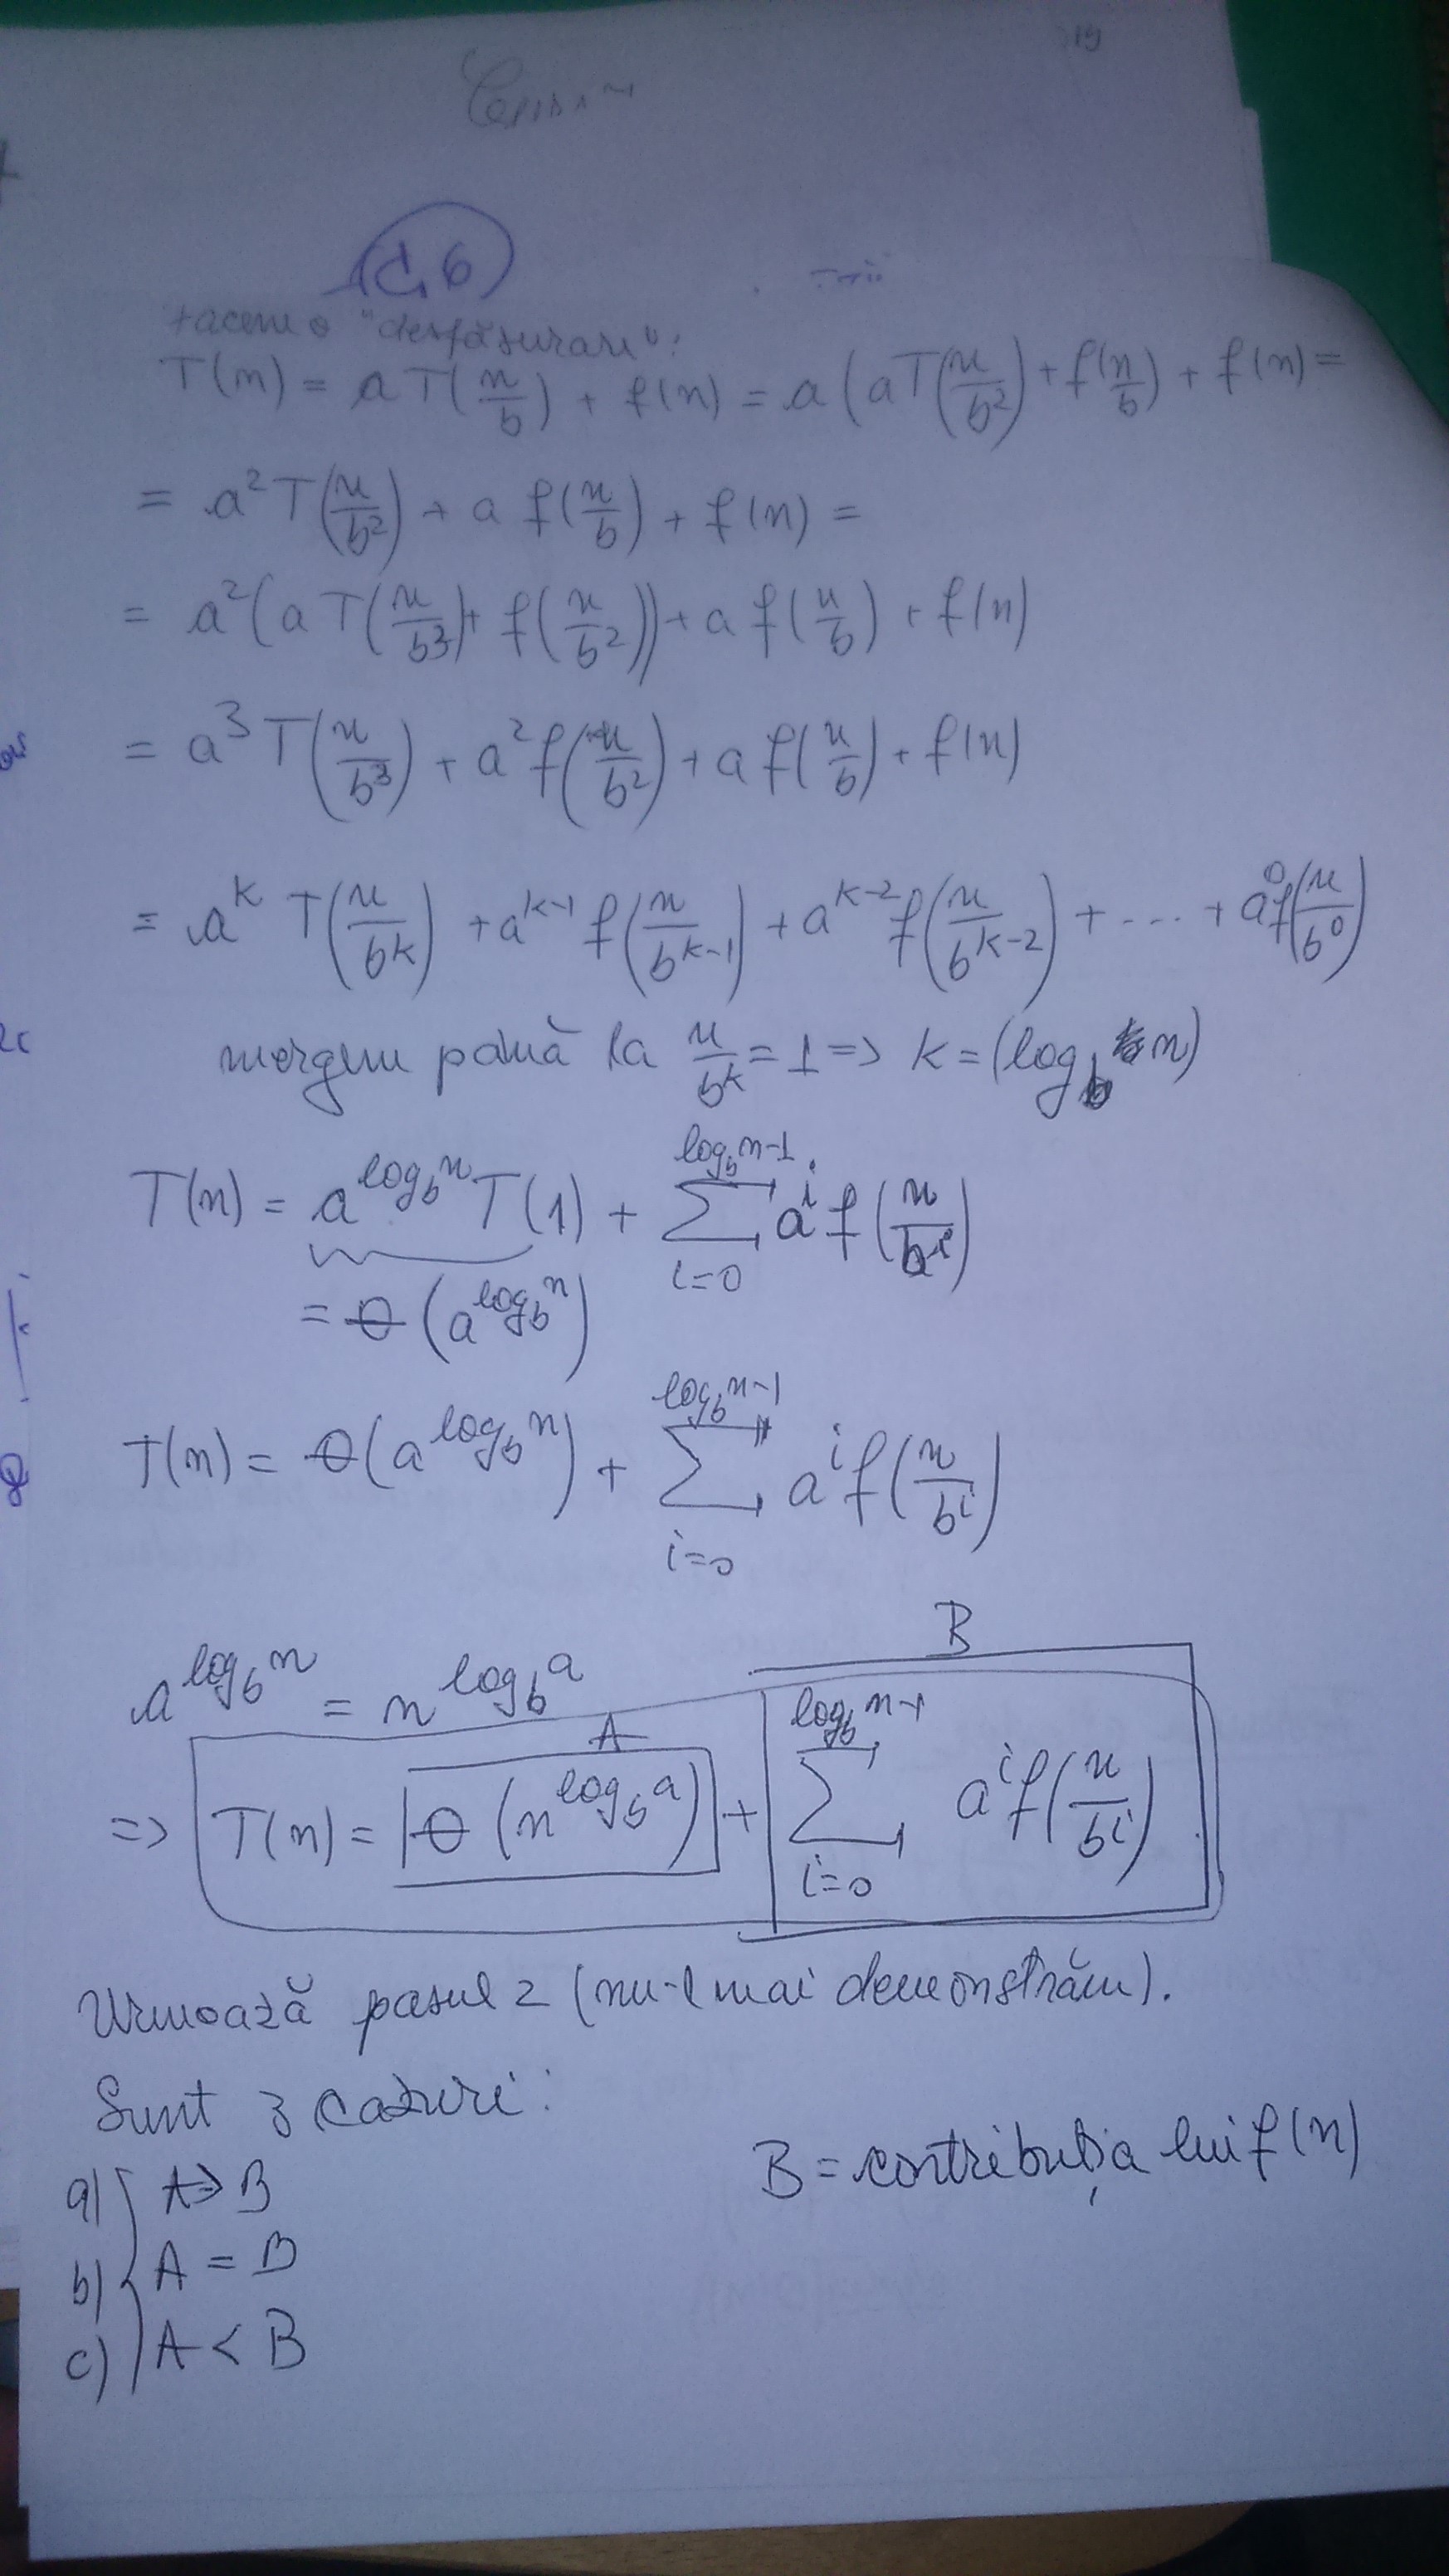 C6
facem o "desfășurare":
T(n) = a T(n/b) + f(n) = a (a T(n/b²) + f(n/b) + f(n) =
= a² T(n/b²) + a f(n/b) + f(n) =
= a² (a T(n/b³) + f(n/b²)) + a f(n/b) + f(n)
= a³ T(n/b³) + a² f(n/b²) + a f(n/b) + f(n)
= a^k T(n/b^k) + a^(k-1) f(n/b^(k-1)) + a^(k-2) f(n/b^(k-2)) + .... + a^0 f(n/b^0)
mergem până la n/b^k = 1 => k = (log_b n)
T(n) = a^(log_b n) T(1) + ∑_{i=0}^{log_b n-1} a^i f(n/b^i)
= Θ (a^(log_b n))
T(n) = Θ(a^(log_b n)) + ∑_{i=0}^{log_b n-1} a^i f(n/b^i)
B
a^(log_b n) = n^(log_b a)
A
=> T(n) = Θ (n^(log_b a)) + ∑_{i=0}^{log_b n-1} a^i f(n/b^i)
Urmează pasul 2 (nu-l mai demonstrăm).
Sunt 3 cazuri:
B = contribuția lui f(n)
a) A > B
b) A = B
c) A < B